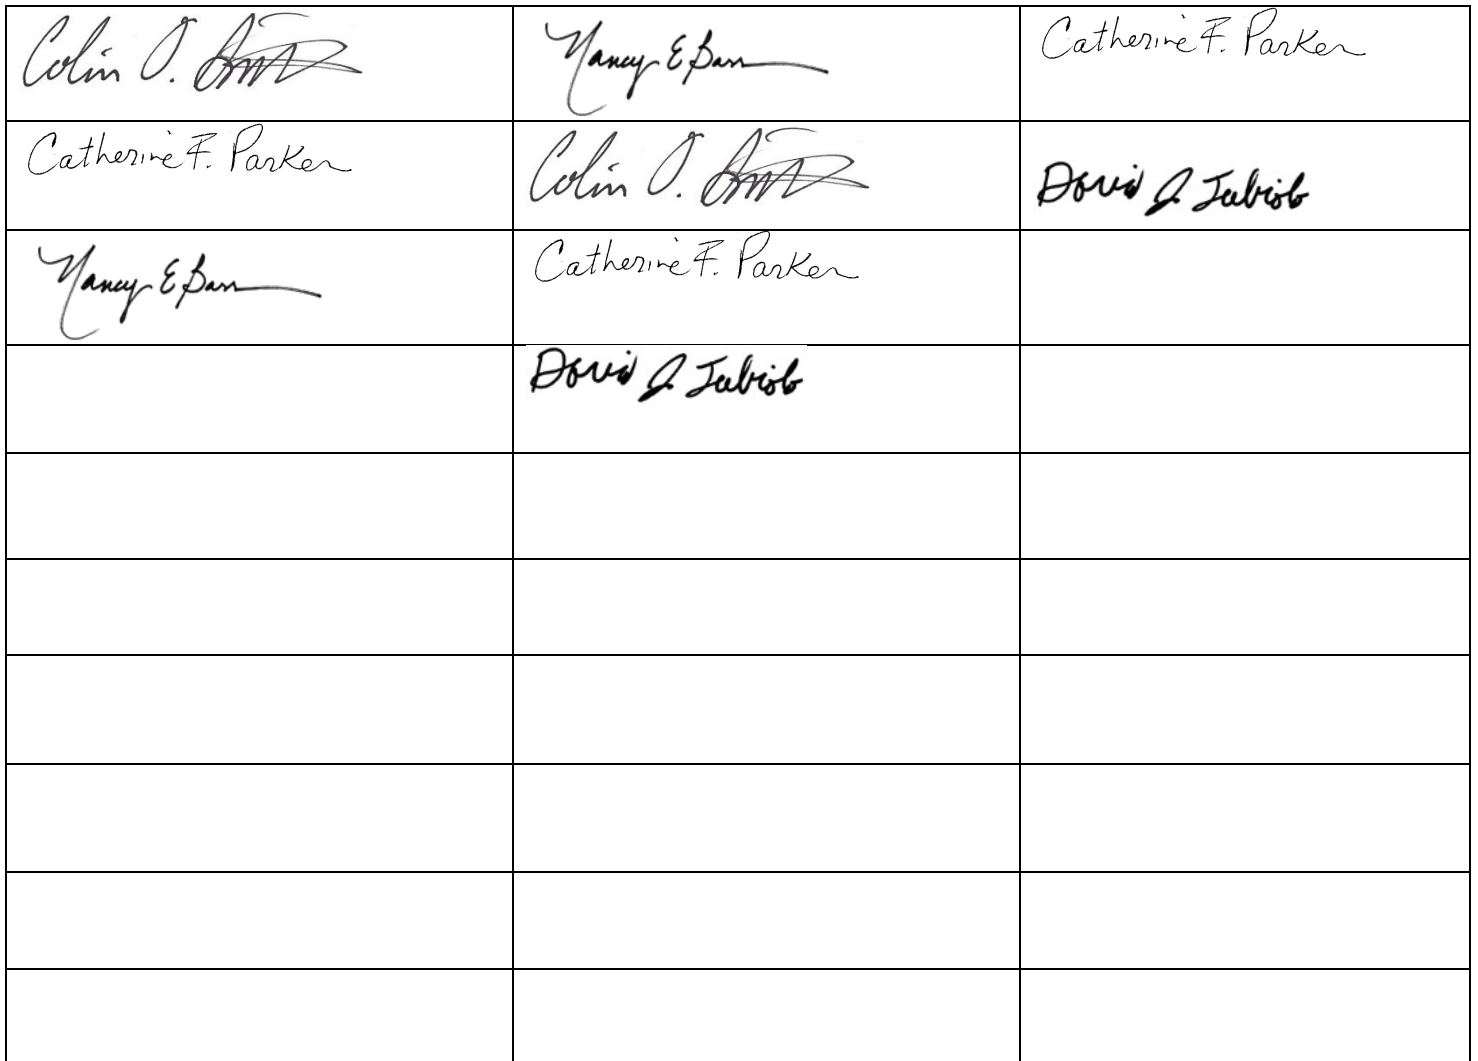 Colin O. Nancy E Barr Catherine F. Parker
Catherine F. Parker Colin O. David J.
Nancy E Barr Catherine F. Parker
David J.